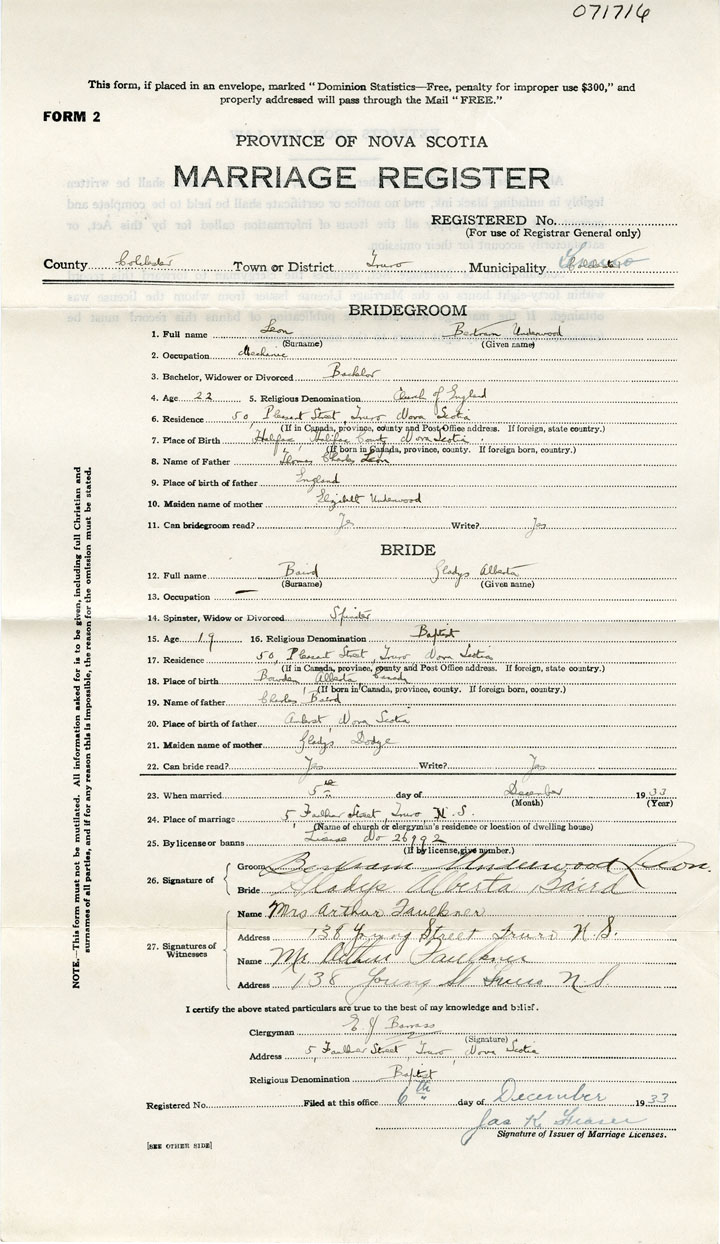 071716
This form, if placed in an envelope, marked "Dominion Statistics—Free, penalty for improper use $300," and
properly addressed will pass through the Mail "FREE."
FORM 2
PROVINCE OF NOVA SCOTIA
MARRIAGE REGISTER
REGISTERED No.
(For use of Registrar General only)
County Colchester Town or District Truro Municipality
BRIDEGROOM
1. Full name Leon Bertram Underwood
(Surname) (Given name)
2. Occupation Mechanic
3. Bachelor, Widower or Divorced Bachelor
4. Age 22 5. Religious Denomination Church of England
6. Residence 50, Pleasant Street, Truro Nova Scotia
(If in Canada, province, county and Post Office address. If foreign, state country.)
7. Place of Birth Halifax, Halifax County Nova Scotia.
(If born in Canada, province, county. If foreign born, country.)
8. Name of Father Thomas Charles Leon
9. Place of birth of father England
10. Maiden name of mother Elizabeth Underwood
11. Can bridegroom read? Yes Write? Yes
BRIDE
12. Full name Baird Gladys Alberta
(Surname) (Given name)
13. Occupation —
14. Spinster, Widow or Divorced Spinster
15. Age 19 16. Religious Denomination Baptist
17. Residence 50, Pleasant Street, Truro Nova Scotia
(If in Canada, province, county and Post Office address. If foreign, state country.)
18. Place of birth Bowden, Alberta Canada
(If born in Canada, province, county. If foreign born, country.)
19. Name of father Charles Baird
20. Place of birth of father Amherst, Nova Scotia
21. Maiden name of mother Gladys Dodge
22. Can bride read? Yes Write? Yes
23. When married 5th day of December 1933
(Month) (Year)
24. Place of marriage 5, Faulkner Street, Truro N.S.
(Name of church or clergyman's residence or location of dwelling house)
25. By license or banns License No 26992
(If by license, give number.)
26. Signature of
Groom Bertram Underwood Leon.
Bride Gladys Alberta Baird
27. Signatures of Witnesses
Name Mrs Arthur Faulkner
Address 138 Young Street Truro N.S.
Name Mr. Arthur Faulkner
Address 138 Young St Truro N.S.
I certify the above stated particulars are true to the best of my knowledge and belief.
Clergyman E. J. Barrass
(Signature)
Address 5, Faulkner Street, Truro, Nova Scotia
Religious Denomination Baptist
Registered No. Filed at this office 6th day of December 1933
Jas K Fraser
Signature of Issuer of Marriage Licenses.
[SEE OTHER SIDE]
NOTE.—This form must not be mutilated. All information asked for is to be given, including full Christian and
surnames of all parties, and if for any reason this is impossible, the reason for the omission must be stated.